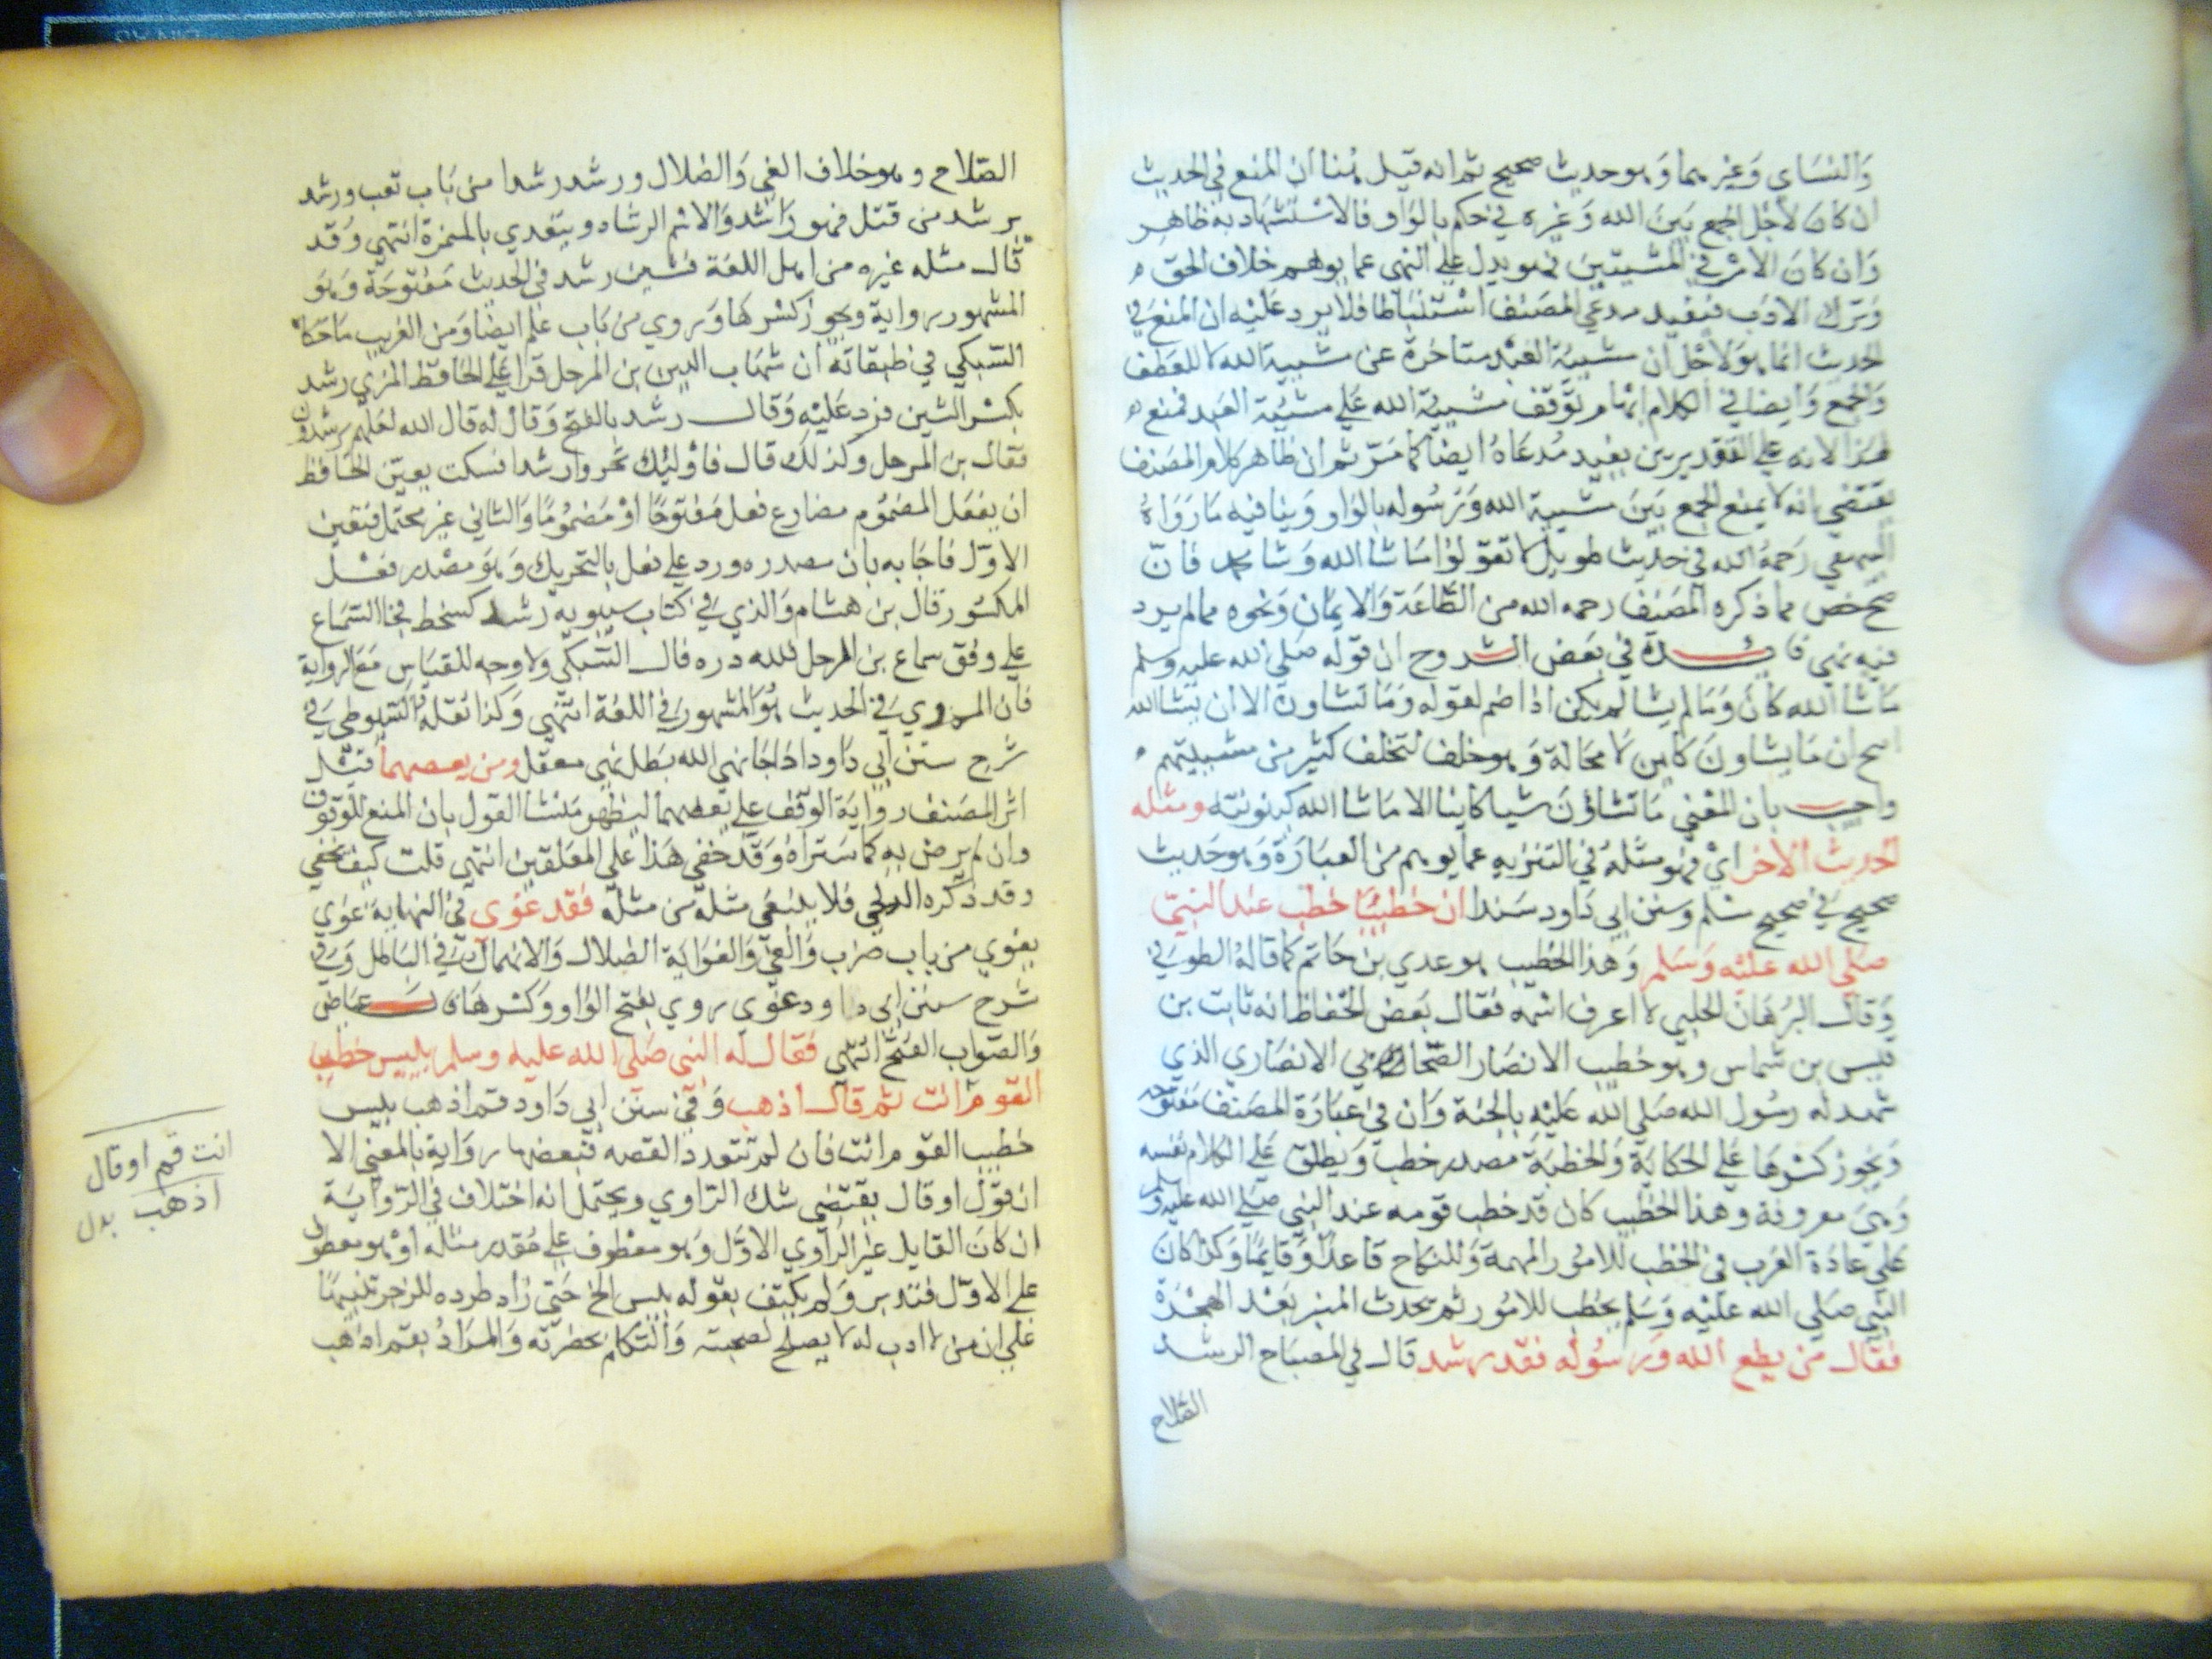 والنساي وغيرهما وهو حديث صحيح ثم انه قيل هنا ان المنع في الحديث
ان كان لاجل الجمع بين الله وغيره في حكم بالواو فالاستشهاد به ظاهر
وان كان الامر في المشيتين فهو يدل على النهى عما يوهم خلاف الحق
وترك الادب فيفيد مدعي المصنف استنباطا فلا يرد عليه ان المنع في
الحديث انما هو لاجل ان مشيئة العبد متاخرة عن مشيية الله لا للعطف
والجمع وايضا في الكلام ايهام توقف مشيية الله على مشيئة العبد فمنع
هذا لانه على التقديرين يفيد مدعاه ايضا كما مر ثم ان ظاهر كلام المصنف
يقتضي انه لا يمنع الجمع بين مشيية الله ورسوله بالواو وينافيه ما رواه
البيهقي رحمه الله في حديث طويل لا تقولوا ما شا الله وشا محمد فان
صح خص مما ذكره المصنف رحمه الله من الطاعة والايمان ونحوه مما لم يرد
فيه نهي فايدة في بعض الشروح ان قوله صلى الله عليه وسلم
ما شا الله كان وما لم يشا لم يكن اذا ضم لقوله وما تشاون الا ان يشا الله
صح ان ما يشاون كاين لا محالة وهو خلف لتخلف كثير من مشييتهم
واجيب بان المعنى ما تشاؤن شيا كاينا الا ما شا الله كينونته ومثله
الحديث الاخر اي فهو مثله في التنزيه عما يوهم من العبارة وهو حديث
صحيح في صحيح مسلم وسنن ابي داود سندا ان خطيبا خطب عند النبي
صلى الله عليه وسلم وهذا الخطيب هو عدي بن حاتم كما قاله الطوفي
وقال البرهان الحلبي لا اعرف اسمه فقال بعض الحفاظ انه ثابت بن
قيس بن شماس وهو خطيب الانصار الصحابي الانصاري الذي
شهد له رسول الله صلى الله عليه بالجنة وان في عبارة المصنف مفتوحه
ويجوز كسرها على الحكاية والخطبة مصدر خطب ويطلق على الكلام نفسه
وهي معروفة وهذا الخطيب كان قد خطب قومه عند النبي صلى الله عليه وسلم
على عادة العرب في الخطب للامور المهمة وللنكاح قاعدا وقايما وكذا كان
النبي صلى الله عليه وسلم يخطب للامور ثم تحدث المنبر بعد الهجرة
فقال من يطع الله ورسوله فقد رشد قال في المصباح الرشد
الصلاح
الصلاح وهو خلاف الغي والضلال ورشد رشدا من باب تعب ورشد
يرشد من قتل فهو راشد والاسم الرشاد ويتعدي بالهمزة انتهى وقد
قال مثله غيره من اهل اللغة فشين رشد في الحديث مفتوحة وهو
المشهور رواية ويجوز كسرها وروي من باب علم ايضا ومن الغريب ما حكاه
السبكي في طبقاته ان شهاب الدين بن المرحل قرا على الحافظ المزي رشد
بكسر الشين فرد عليه وقال رشد بالفتح وقال له قال الله لعلهم يرشدون
فقال بن المرحل وكذلك قال فاوليك تحروا رشدا فسكت يعني الحافظ
ان يفعل المضموم مضارع فعل مفتوحا او مضموما والثاني غير محتمل فتعين
الاول فاجابه بان مصدره ورد على فعل بالتحريك وهو مصدر فعل
المكسور قال بن هشام والذي في كتاب سيبويه رشد كسخط فجا السماع
على وفق سماع بن المرحل فلله دره قال السبكي ولا وجه للقياس مع الرواية
فان المروي في الحديث هو المشهور في اللغة انتهى وكذا نقله السيوطي في
شرح سنن ابي داود اذا جا نهي الله بطل نهي معقل ومن يعصهما قيل
اثر المصنف رواية الوقف على يعصهما ليظهر منشا القول بان المنع للوقوف
وان لم يرض به كما ستراه وقد خفي هذا على المعلقين انتهى قلت كيف يخفي
وقد ذكره الدلجي فلا ينبغي مثله من مثله فقد غوى في النهاية غوي
يغوي من باب ضرب والغي والغواية الضلال والانهماك في الباطل وفي
شرح سنن ابي داود غوى روي بفتح الواو وكسرها عياض
والصواب الفتح انتهى فقال له النبى صلى الله عليه وسلم بييس خطيب
القوم انت ثم قال اذهب وفي سنن ابي داود قم اذهب بييس
خطيب القوم انت فان لم تتعدد القصه فبعضها رواية بالمعنى الا
ان قول او قال يقتضي شك الراوي ويحتمل انه اختلاف في الرواية
ان كان القايل غير الراوي الاول وهو معطوف على مقدر مثله او هو معطوف
على الاول فتدبر ولم يكتف بقوله بييس الخ حتى زاد طرده للزجر تنبيها
على ان من لا ادب له لا يصلح لصحبته والتكلم بحضرته والمراد بقم اذهب
انت قم او قال
اذهب بدل